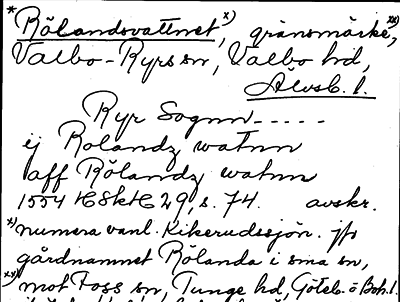 * Rölandsvattnet, x) gränsmärke, xx)
Valbo-Ryrs sn, Valbo hd,
Älvsb. l.
Ryr Sognn - - - - -
ej Rolandz watnn
aff Rölandz watnn
1554 29, s. 74. avskr.
x) numera vanl. Kikerudssjön. jfr
gårdnamnet Rölanda i sma sn,
xx) mot Foss sn, Tunge hd, Göteb. o Boh. l.